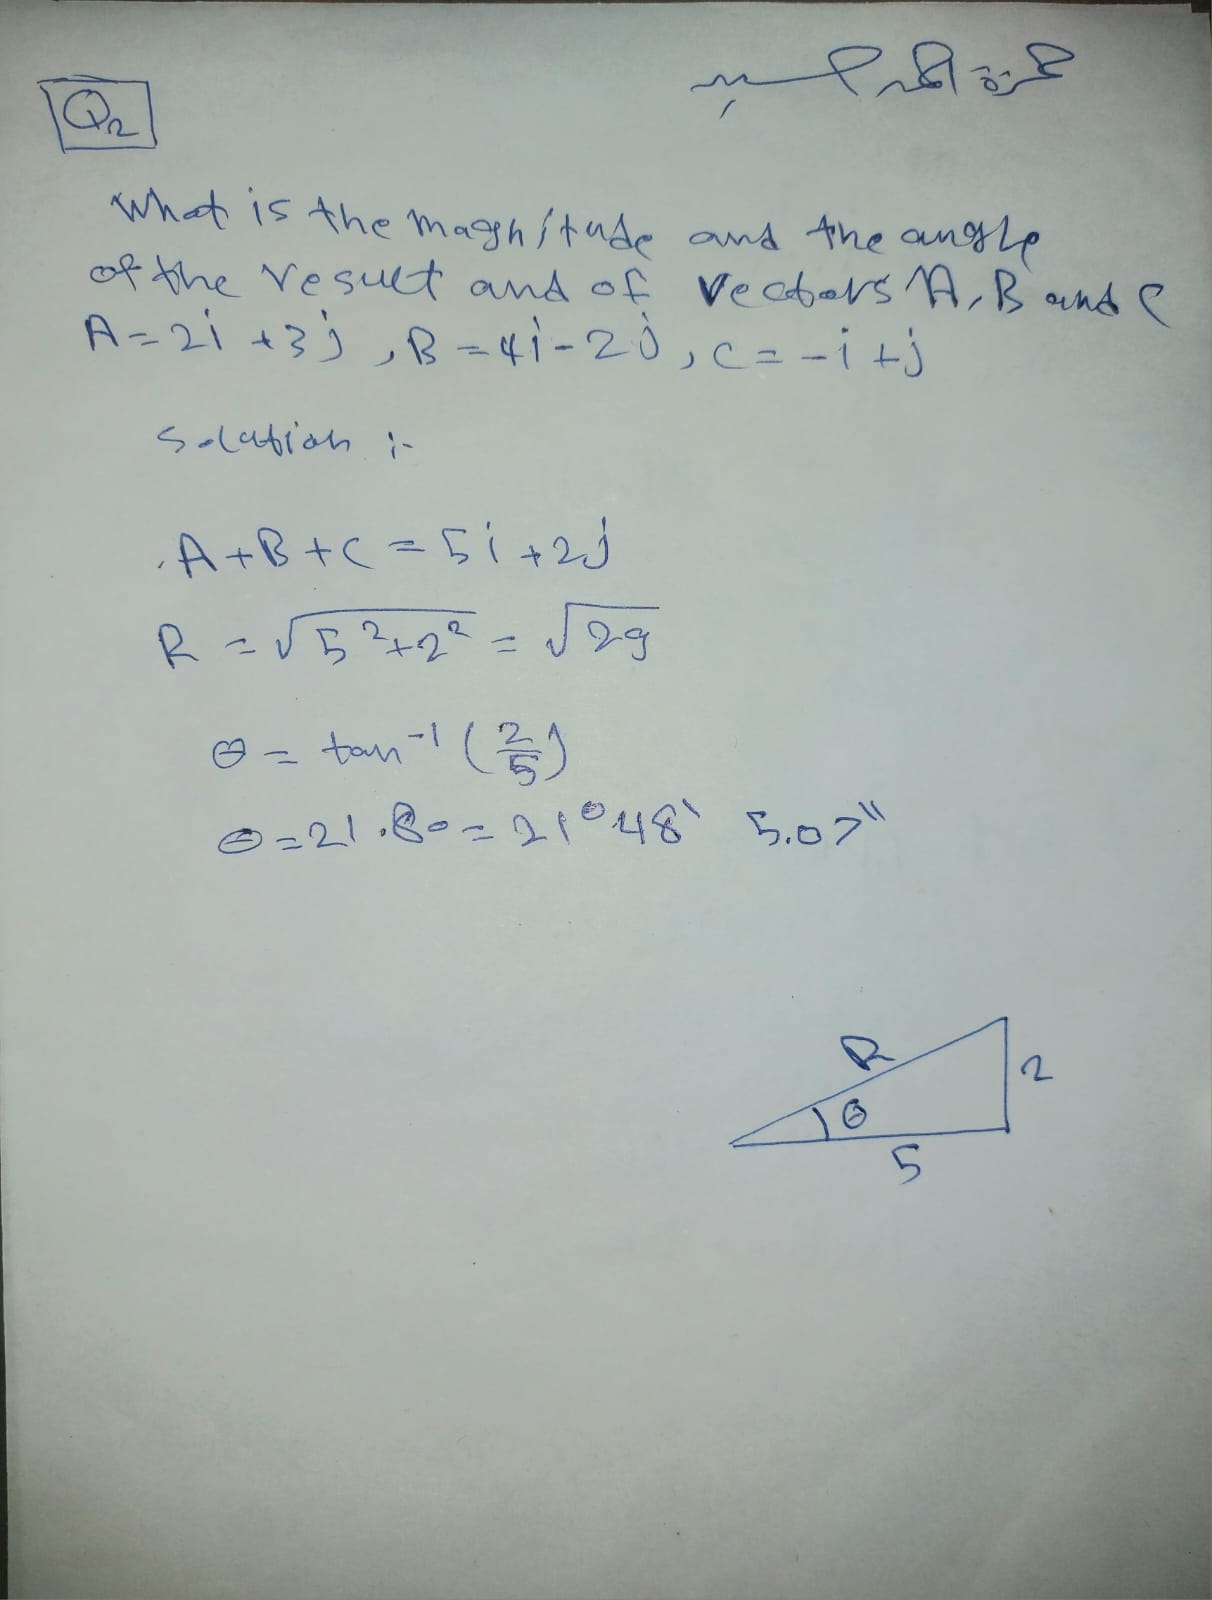 حمزة احمد السيد
Q2
What is the magnitude and the angle
of the result and of vectors A, B and C
A = 2i + 3j , B = 4i - 2j , C = - i + j
Solution :-
A + B + C = 5i + 2j
R = √5²+2² = √29
θ = tan⁻¹ (2/5)
θ = 21.80 = 21° 48' 5.07"
R
2
θ
5